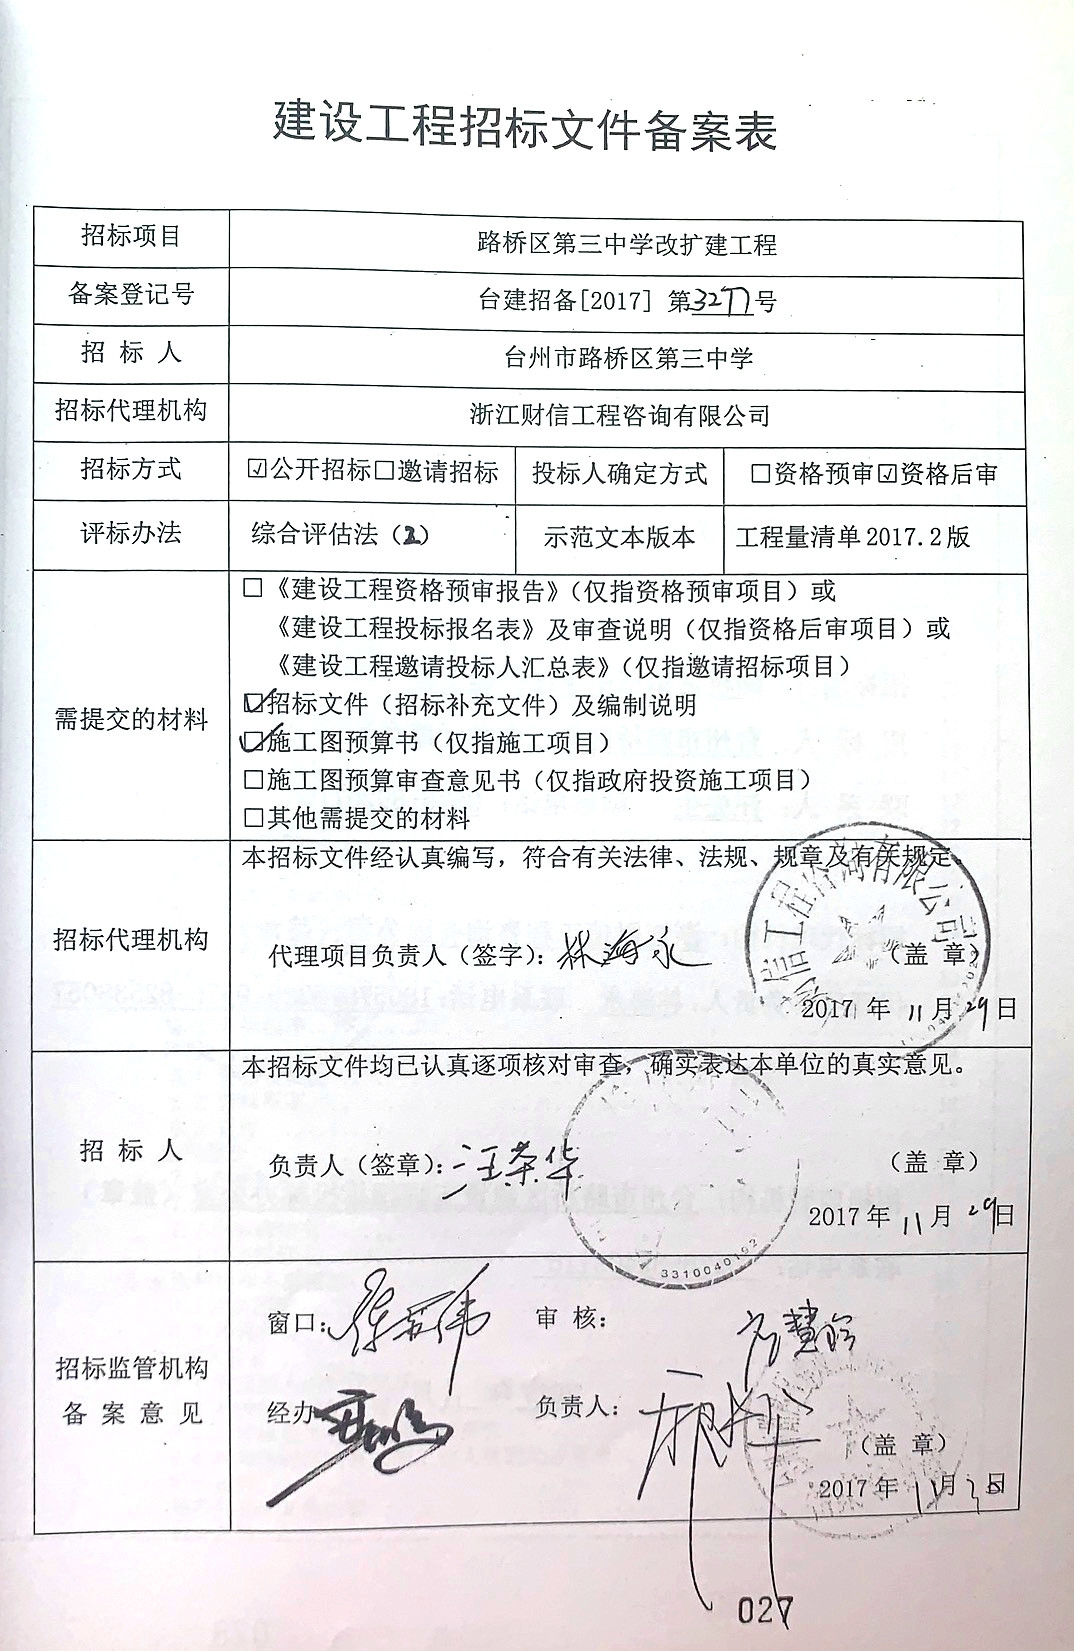 建设工程招标文件备案表
招标项目 路桥区第三中学改扩建工程
备案登记号 台建招备[2017] 第3277号
招 标 人 台州市路桥区第三中学
招标代理机构 浙江财信工程咨询有限公司
招标方式 ☑公开招标☐邀请招标 投标人确定方式 ☐资格预审☑资格后审
评标办法 综合评估法（2） 示范文本版本 工程量清单2017.2版
需提交的材料
☐《建设工程资格预审报告》（仅指资格预审项目）或
《建设工程投标报名表》及审查说明（仅指资格后审项目）或
《建设工程邀请投标人汇总表》（仅指邀请招标项目）
☑招标文件（招标补充文件）及编制说明
☑施工图预算书（仅指施工项目）
☐施工图预算审查意见书（仅指政府投资施工项目）
☐其他需提交的材料
招标代理机构
本招标文件经认真编写，符合有关法律、法规、规章及有关规定。
代理项目负责人（签字）：林海永 （盖 章）
信工程咨询有限公司
2017 年 11 月 29 日
招 标 人
本招标文件均已认真逐项核对审查，确实表达本单位的真实意见。
负责人（签章）：汪荣华 （盖 章）
2017 年 11 月 29 日
3310040192
招标监管机构
备 案 意 见
窗口： 审 核：
经办 负责人：
（盖 章）
2017 年 11 月 30 日
027